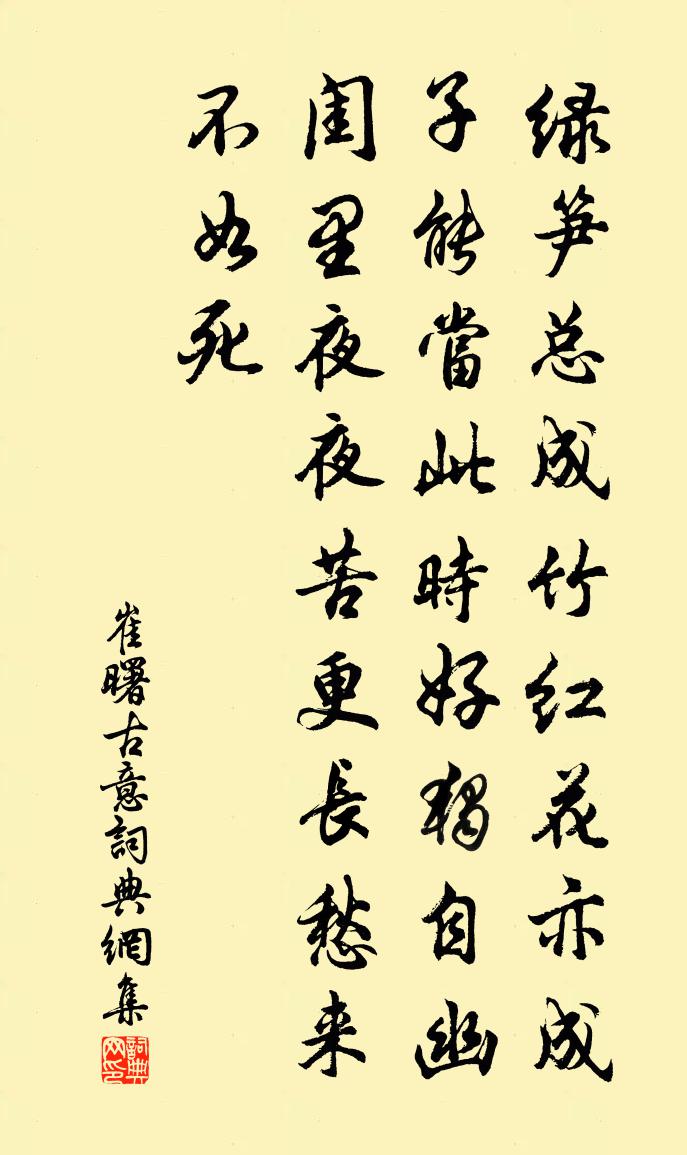 绿笋总成竹红花亦成
子能當此時好獨自幽
闺里夜夜苦更長愁来
不如死
崔曙古意詞典網集
詞典网印